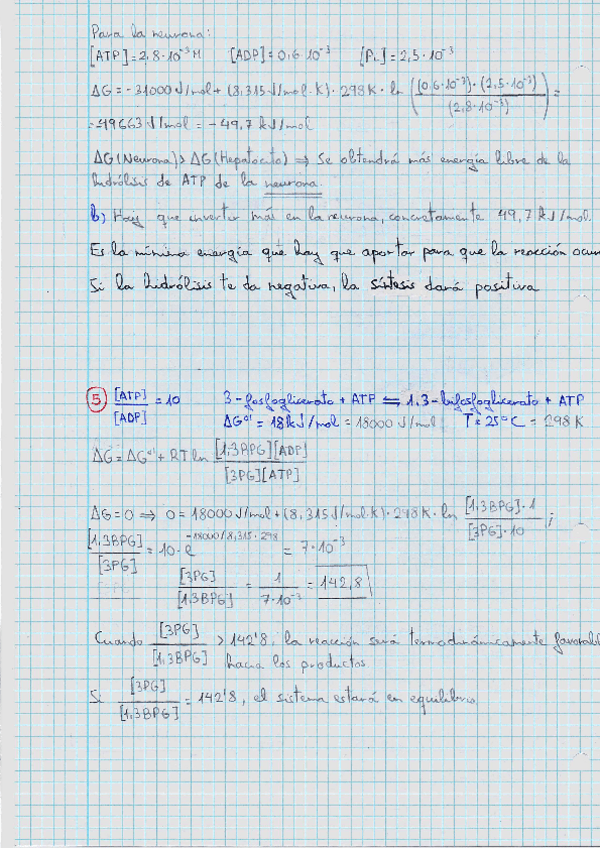 Para la neurona:
[ATP] = 2,8·10⁻³ M [ADP] = 0,6·10⁻³ [Pi] = 2,5·10⁻³
ΔG = -31000 J/mol + (8,315 J/mol·K)·298K·ln ((0,6·10⁻³)·(2,5·10⁻³) / (2,8·10⁻³)) =
= -49663 J/mol = -49,7 kJ/mol
ΔG (Neurona) > ΔG (Hepatocito) ⇒ Se obtendrá más energía libre de la
hidrólisis de ATP de la neurona.
b) Hay que invertir más en la neurona, concretamente 49,7 kJ/mol.
Es la mínima energía que hay que aportar para que la reacción ocurr
Si la hidrólisis te da negativa, la síntesis dará positiva
5 [ATP]/[ADP] = 10 3-fosfoglicerato + ATP ⇆ 1,3-bifosfoglicerato + ATP
ΔG°' = 18 kJ/mol = 18000 J/mol T = 25°C = 298 K
ΔG = ΔG°' + RT ln [1,3BPG][ADP] / [3PG][ATP]
ΔG = 0 ⇒ 0 = 18000 J/mol + (8,315 J/mol·K)·298 K·ln [1,3BPG]·1 / [3PG]·10 ;
[1,3BPG]/[3PG] = 10·e^(-18000/8,315·298) = 7·10⁻³
[3PG]/[1,3BPG] = 1/7·10⁻³ = 142,8
Cuando [3PG]/[1,3BPG] > 142'8, la reacción será termodinámicamente favorabl
hacia los productos
Si [3PG]/[1,3BPG] = 142'8, el sistema estará en equilibrio